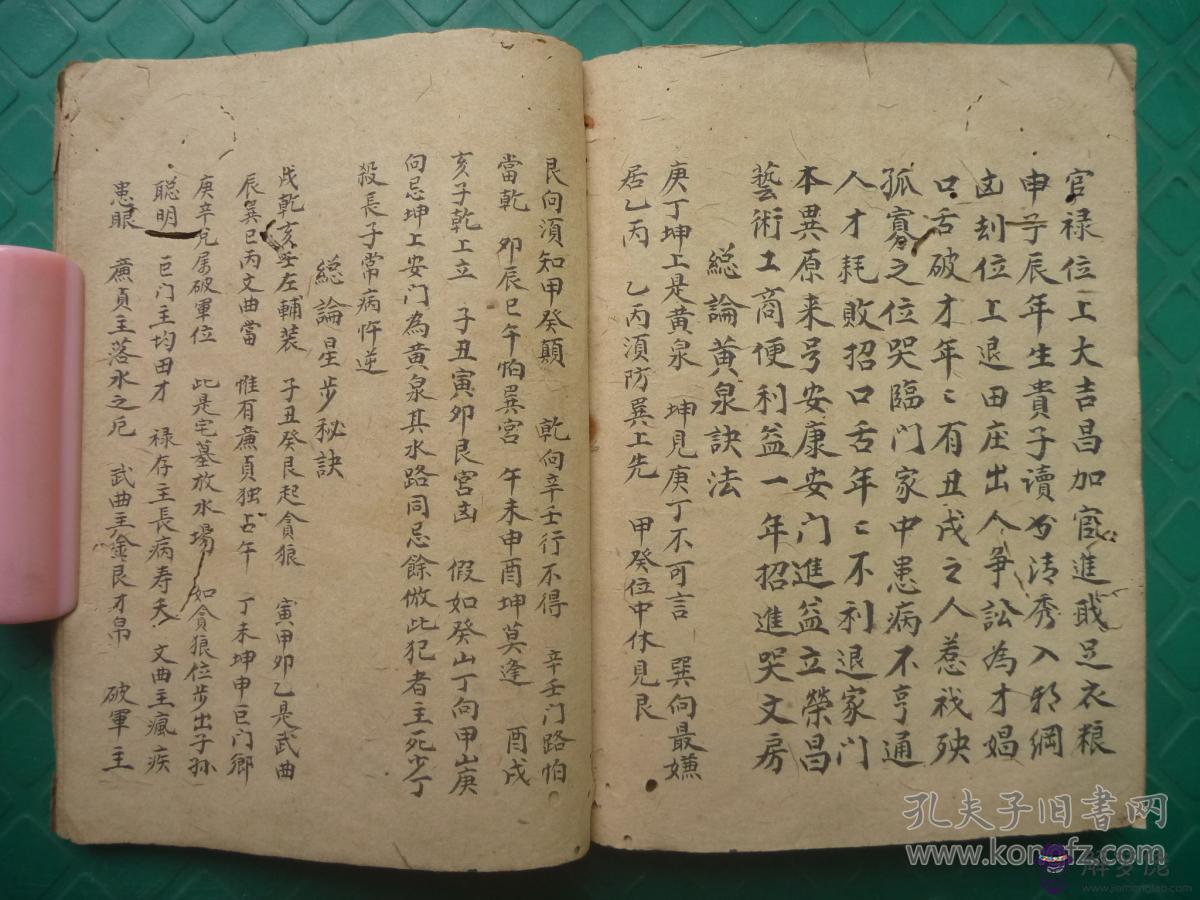 官禄位上大吉昌加官進戝足衣粮
申子辰年生貴子讀书清秀入邦綱
凶刦位上退田庄出人争訟為才娼
口舌破才年〻有丑戌之人惹祸殃
孤寡之位哭臨門家中患病不亨通
人才耗敗招口舌年〻不利退家門
本異原来号安康安门進益立榮昌
藝術工商便利益一年招進哭文房
総論黄泉訣法
庚丁坤上是黄泉 坤見庚丁不可言 巽向最嫌
居乙丙 乙丙須防巽上先 甲癸位中休見艮
艮向須知甲癸顛 乾向辛壬行不得 辛壬门路怕
當乾 卯辰巳午怕巽宮 午未申酉坤莫逢 酉戌
亥子乾上立 子丑寅卯艮宮凶 假如癸山丁向甲山庚
向忌坤上安门為黄泉其水路同忌餘倣此犯者主死少丁
殺長子常病忤逆
総論星步秘訣
戌乾亥壬左輔装 子丑癸艮起貪狼 寅甲卯乙是武曲
辰巽巳丙文曲當 惟有廉貞独占午 丁未坤申巨门鄉
庚辛兑属破軍位 此是宅墓放水場 如貪狼位步出子孫
聡明 巨门主均田才 禄存主長病寿夭 文曲主瘋疾
患眼 廉貞主落水之厄 武曲主金艮才帛 破軍主
孔夫子旧书网
www.kongfz.com
www.jiemenglab.com